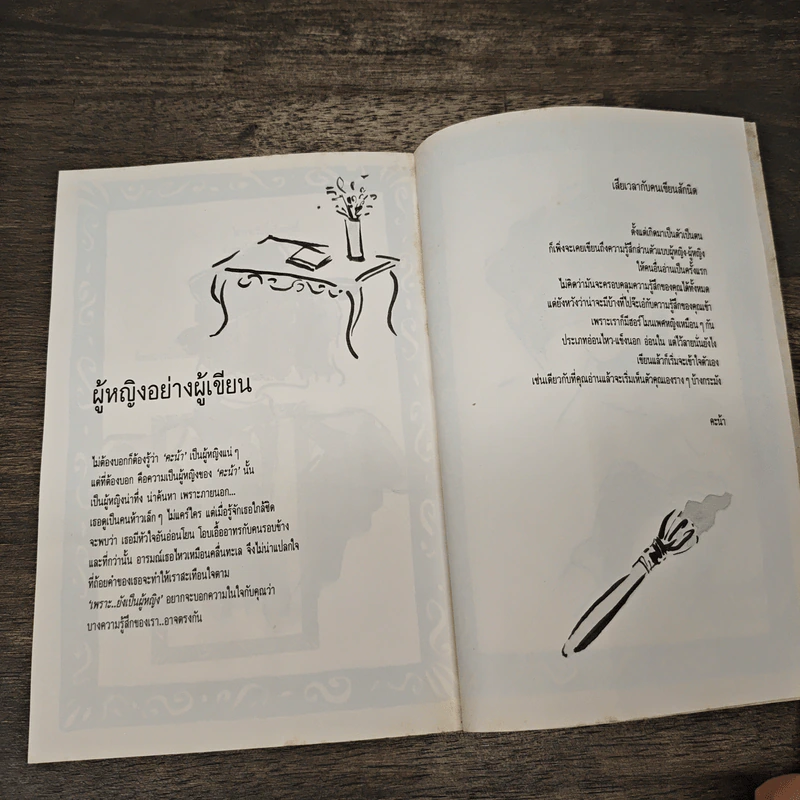 ผู้หญิงอย่างผู้เขียน
ไม่ต้องบอกก็ต้องรู้ว่า ‘คะน้า’ เป็นผู้หญิงแน่ ๆ
แต่ที่ต้องบอก คือความเป็นผู้หญิงของ ‘คะน้า’ นั้น
เป็นผู้หญิงน่าทึ่ง น่าค้นหา เพราะภายนอก...
เธอดูเป็นคนห้าวเล็ก ๆ ไม่แคร์ใคร แต่เมื่อรู้จักเธอใกล้ชิด
จะพบว่า เธอมีหัวใจอันอ่อนโยน โอบเอื้ออาทรกับคนรอบข้าง
และที่กว่านั้น อารมณ์เธอไหวเหมือนคลื่นทะเล จึงไม่น่าแปลกใจ
ที่ถ้อยคำของเธอจะทำให้เราสะเทือนใจตาม
‘เพราะ..ยังเป็นผู้หญิง’ อยากจะบอกความในใจกับคุณว่า
บางความรู้สึกของเรา..อาจตรงกัน
เสียเวลากับคนเขียนสักนิด
ตั้งแต่เกิดมาเป็นตัวเป็นตน
ก็เพิ่งจะเคยเขียนถึงความรู้สึกส่วนตัวแบบผู้หญิง-ผู้หญิง
ให้คนอื่นอ่านเป็นครั้งแรก
ไม่คิดว่ามันจะครอบคลุมความรู้สึกของคุณได้ทั้งหมด
แต่ยังหวังว่าน่าจะมีบ้างที่ไปจ๊ะเอ๋กับความรู้สึกของคุณเข้า
เพราะเราก็มีฮอร์โมนเพศหญิงเหมือน ๆ กัน
ประเภทอ่อนไหว-แข็งนอก อ่อนใน แต่ไว้ลายนั่นยังไง
เขียนแล้วก็เริ่มจะเข้าใจตัวเอง
เช่นเดียวกับที่คุณอ่านแล้วจะเริ่มเห็นตัวคุณเองราง ๆ บ้างกระมัง
คะน้า